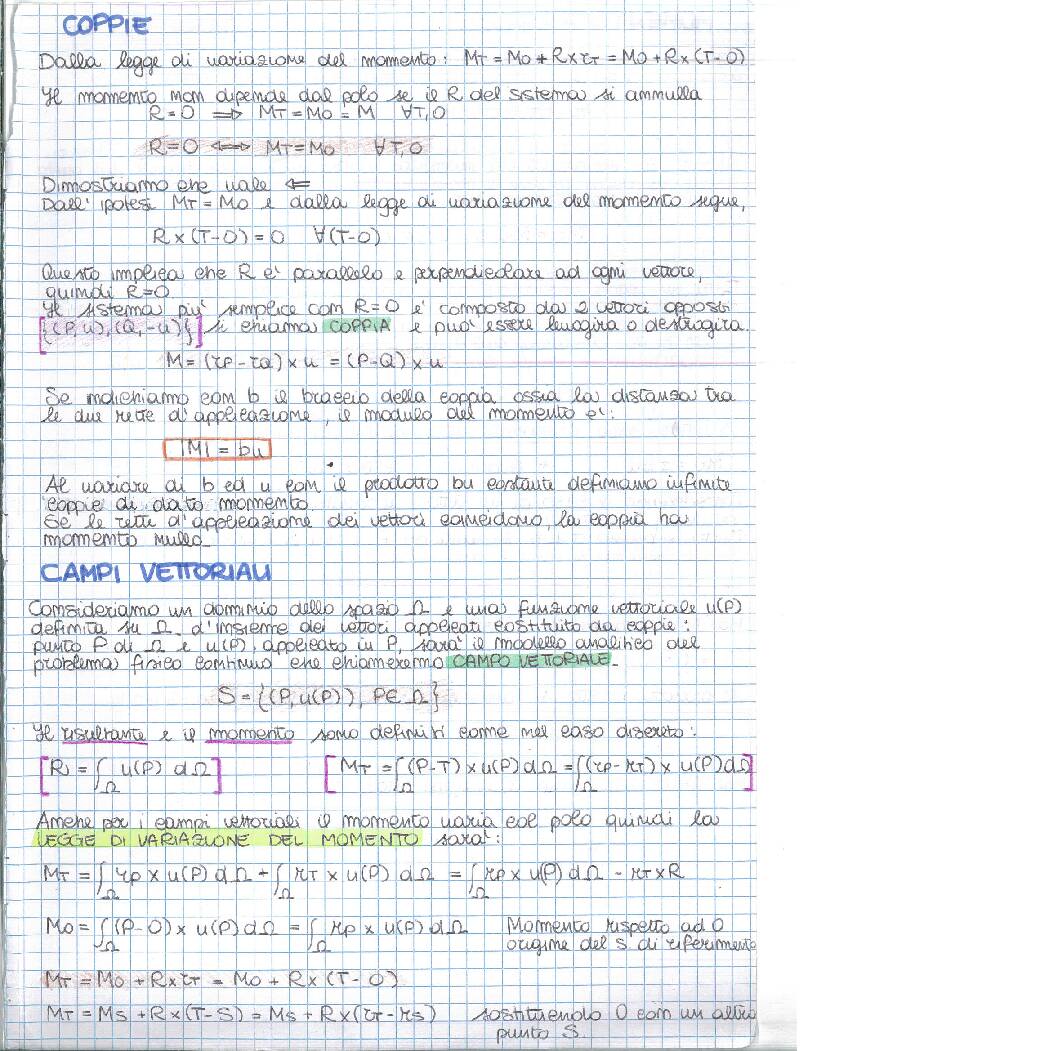 COPPIE
Dalla legge di variazione del momento: MT = MO + R×rT = MO + R×(T-O)
Il momento non dipende dal polo se il R del sistema si annulla
R=O ⟹ MT=MO=M ∀T,O
R=O ⟺ MT=MO ∀T,O
Dimostriamo che vale ⟸
Dall' ipotesi MT=MO e dalla legge di variazione del momento segue,
R×(T-O)=0 ∀(T-O)
Questo implica che R e' parallelo e perpendicolare ad ogni vettore,
quindi R=O.
Il sistema piu' semplice con R=O e' composto da 2 vettori opposti
{(P,u),(Q,-u)} si chiama COPPIA e puo' essere levogira o destrogira.
M=(rP-rQ)×u =(P-Q)×u
Se indichiamo con b il braccio della coppia ossia la distanza tra
le due rette d'applicazione, il modulo del momento e':
|M| = bu
Al variare di b ed u con il prodotto bu costante definiamo infinite
coppie di dato momento.
Se le rette d'applicazione dei vettori coincidono, la coppia ha
momento nullo.
CAMPI VETTORIALI
Consideriamo un dominio dello spazio Ω e una funzione vettoriale u(P)
definita su Ω. L'insieme dei vettori applicati costituito da coppie:
punto P di Ω e u(P), applicato in P, sara' il modello analitico del
problema fisico continuo che chiameremo CAMPO VETTORIALE.
S={(P,u(P)), P∈Ω}
Il risultante e il momento sono definiti come nel caso discreto:
[R=∫Ω u(P) dΩ] [MT =∫Ω(P-T)×u(P)dΩ=∫Ω(rP-rT)×u(P)dΩ]
Anche per i campi vettoriali il momento varia col polo quindi la
LEGGE DI VARIAZIONE DEL MOMENTO sara':
MT=∫Ω rP×u(P)dΩ-∫Ω rT×u(P) dΩ =∫Ω rP×u(P)dΩ - rT×R
MO=∫Ω(P-O)×u(P)dΩ=∫Ω rP×u(P)dΩ Momento rispetto ad O
origine del s. di riferimento
MT=MO+R×rT = MO+R×(T-O)
MT=MS+R×(T-S)=MS+R×(rT-rS) sostituendo O con un altro
punto S.